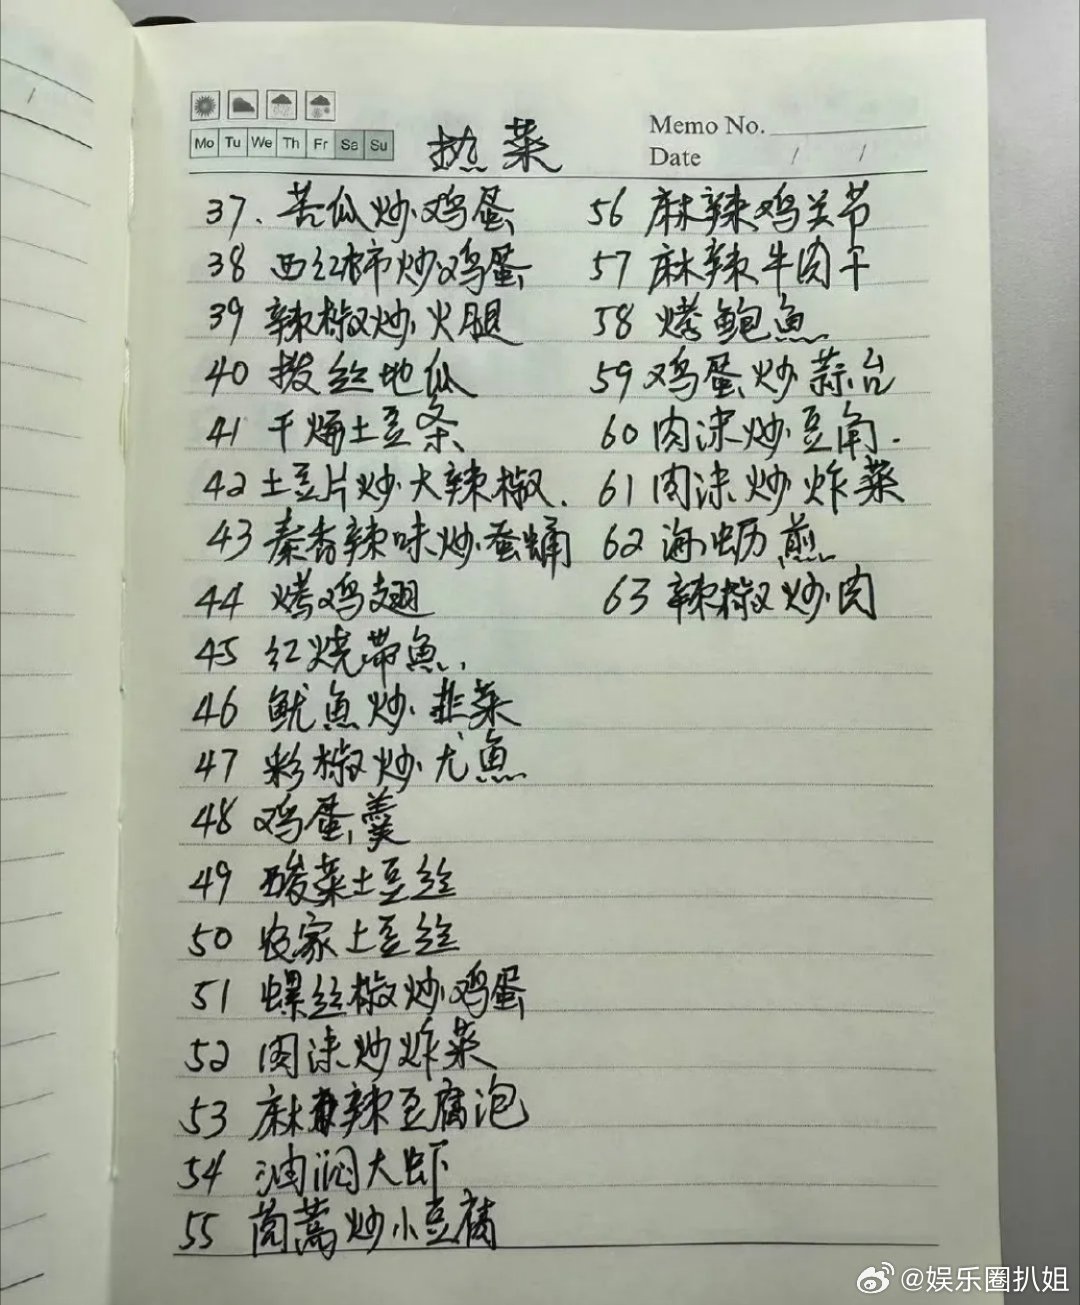 Mo Tu We Th Fr Sa Su
热菜
Memo No.
Date / /
37. 苦瓜炒鸡蛋
38 西红柿炒鸡蛋
39 辣椒炒火腿
40 拨丝地瓜
41 干煸土豆条
42 土豆片炒大辣椒.
43 秦香辣味炒蚕蛹
44 烤鸡翅
45 红烧带魚.
46 鱿魚炒韭菜
47 彩椒炒尤魚
48 鸡蛋羹
49 酸菜土豆丝
50 农家土豆丝
51 螺丝椒炒鸡蛋
52 肉沫炒炸菜
53 麻辣豆腐泡
54 油焖大虾
55 茼蒿炒小豆腐
56 麻辣鸡关节
57 麻辣牛肉干
58 烤鲍魚
59 鸡蛋炒蒜台
60 肉沫炒豆角.
61 肉沫炒炸菜
62 海蛎煎
63 辣椒炒肉
@娱乐圈扒姐